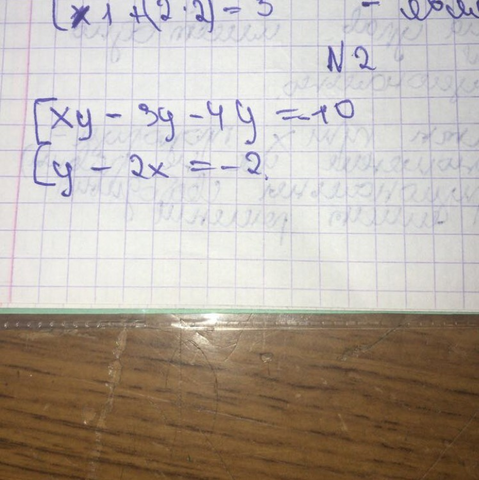 (x1+(2·2)=3 -
N2
xy - 3y - 4y = -10
y - 2x = -2.